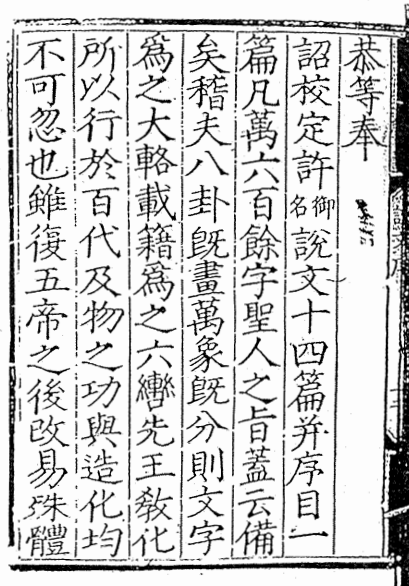 恭等奉
詔校定許御名說文十四篇并序目一
篇凡萬六百餘字聖人之旨蓋云備
矣稽夫八卦旣畫萬象旣分則文字
爲之大輅載籍爲之六轡先王敎化
所以行於百代及物之功與造化均
不可忽也雖復五帝之後改易殊體